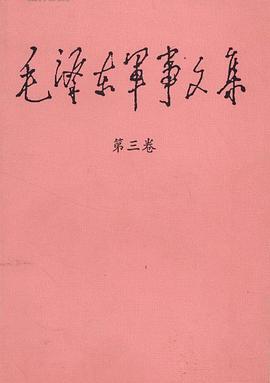 毛泽东军事文集
第三卷